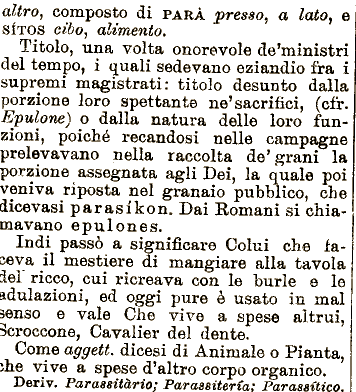 altro, composto di PARÀ presso, a lato, e
sítos cibo, alimento.
Titolo, una volta onorevole de'ministri
del tempo, i quali sedevano eziandio fra i
supremi magistrati: titolo desunto dalla
porzione loro spettante ne'sacrifici, (cfr.
Epulone) o dalla natura delle loro fun-
zioni, poiché recandosi nelle campagne
prelevavano nella raccolta de'grani la
porzione assegnata agli Dei, la quale poi
veniva riposta nel granaio pubblico, che
dicevasi parasíkon. Dai Romani si chia-
mavano epulones.
Indi passò a significare Colui che fa-
ceva il mestiere di mangiare alla tavola
del ricco, cui ricreava con le burle e le
adulazioni, ed oggi pure è usato in mal
senso e vale Che vive a spese altrui,
Scroccone, Cavalier del dente.
Come aggett. dicesi di Animale o Pianta,
che vive a spese d'altro corpo organico.
Deriv. Parassitàrio; Parassitería; Parassítico.